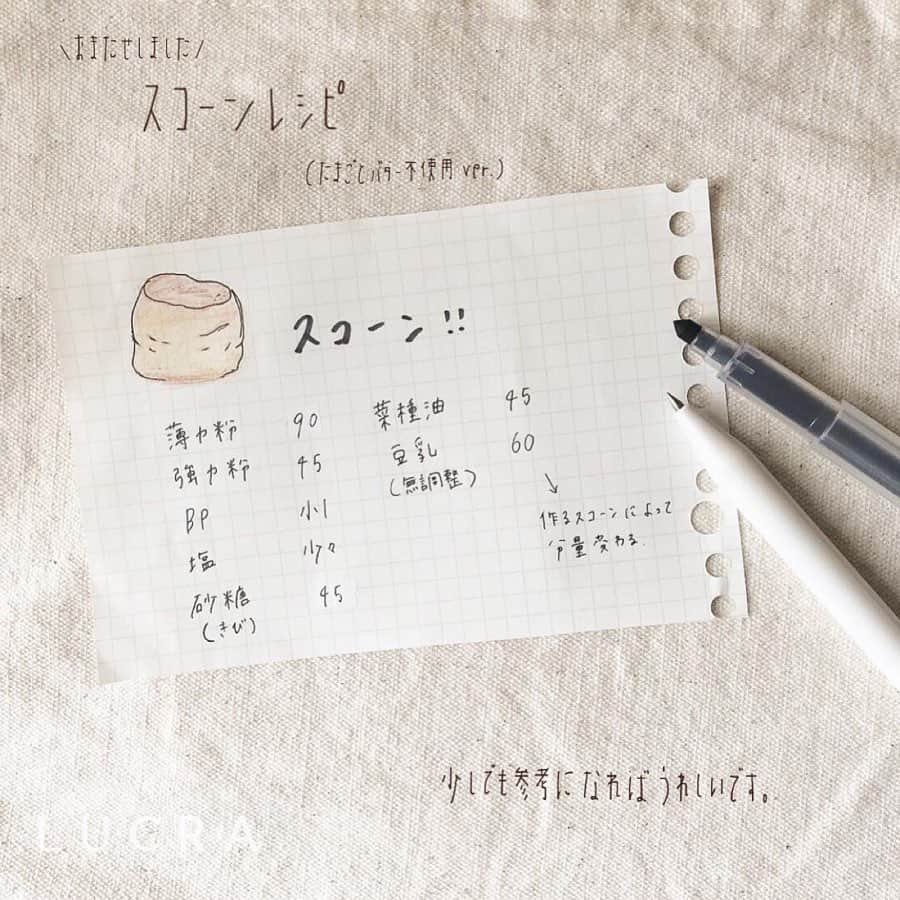 \おまたせしました/
スコーンレシピ
(たまごとバター不使用 ver.)
スコーン!!
薄力粉 90
強力粉 45
BP 小1
塩 少々
砂糖 45
(きび)
菜種油 45
豆乳 60
(無調整)
↓
作るスコーンによって
分量変わる.
少しでも参考になればうれしいです。
LUCRA